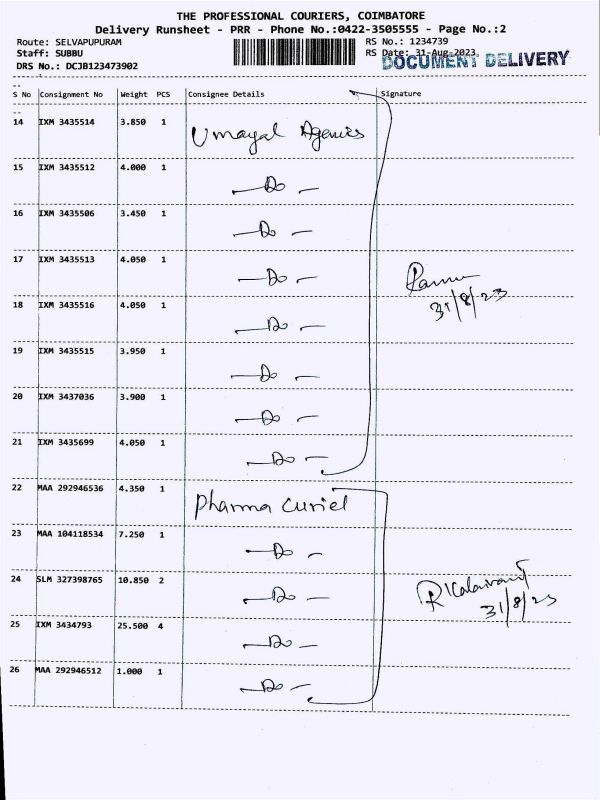 THE PROFESSIONAL COURIERS, COIMBATORE
Delivery Runsheet - PRR - Phone No.:0422-3505555 - Page No.:2
Route: SELVAPUPURAM
RS No.: 1234739
Staff: SUBBU
RS Date: 31-Aug-2023
DOCUMENT DELIVERY
DRS No.: DCJB123473902
S No Consignment No Weight PCS Consignee Details Signature
14 IXM 3435514 3.850 1 Umayal Agencies
15 IXM 3435512 4.000 1 - Do -
16 IXM 3435506 3.450 1 - Do -
17 IXM 3435513 4.050 1 - Do -
31/8/23
18 IXM 3435516 4.050 1 - Do -
19 IXM 3435515 3.950 1 - Do -
20 IXM 3437036 3.900 1 - Do -
21 IXM 3435699 4.050 1 - Do -
22 MAA 292946536 4.350 1 Pharma Curiel
23 MAA 104118534 7.250 1 - Do -
24 SLM 327398765 10.850 2 - Do -
31/8/23
25 IXM 3434793 25.500 4 - Do -
26 MAA 292946512 1.000 1 - Do -